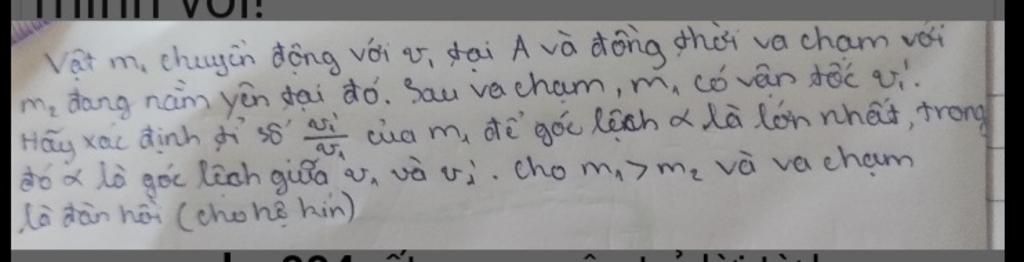 mình với!
Vật m₁ chuyển động với v₁ tại A và đồng thời va chạm với
m₂ đang nằm yên tại đó. Sau va chạm, m₁ có vận tốc v₁'.
Hãy xác định tỉ số v₁'/v₁ của m₁ để góc lệch α là lớn nhất, trong
đó α là góc lệch giữa v₁ và v₁'. Cho m₁ > m₂ và va chạm
là đàn hồi (cho hệ kín)